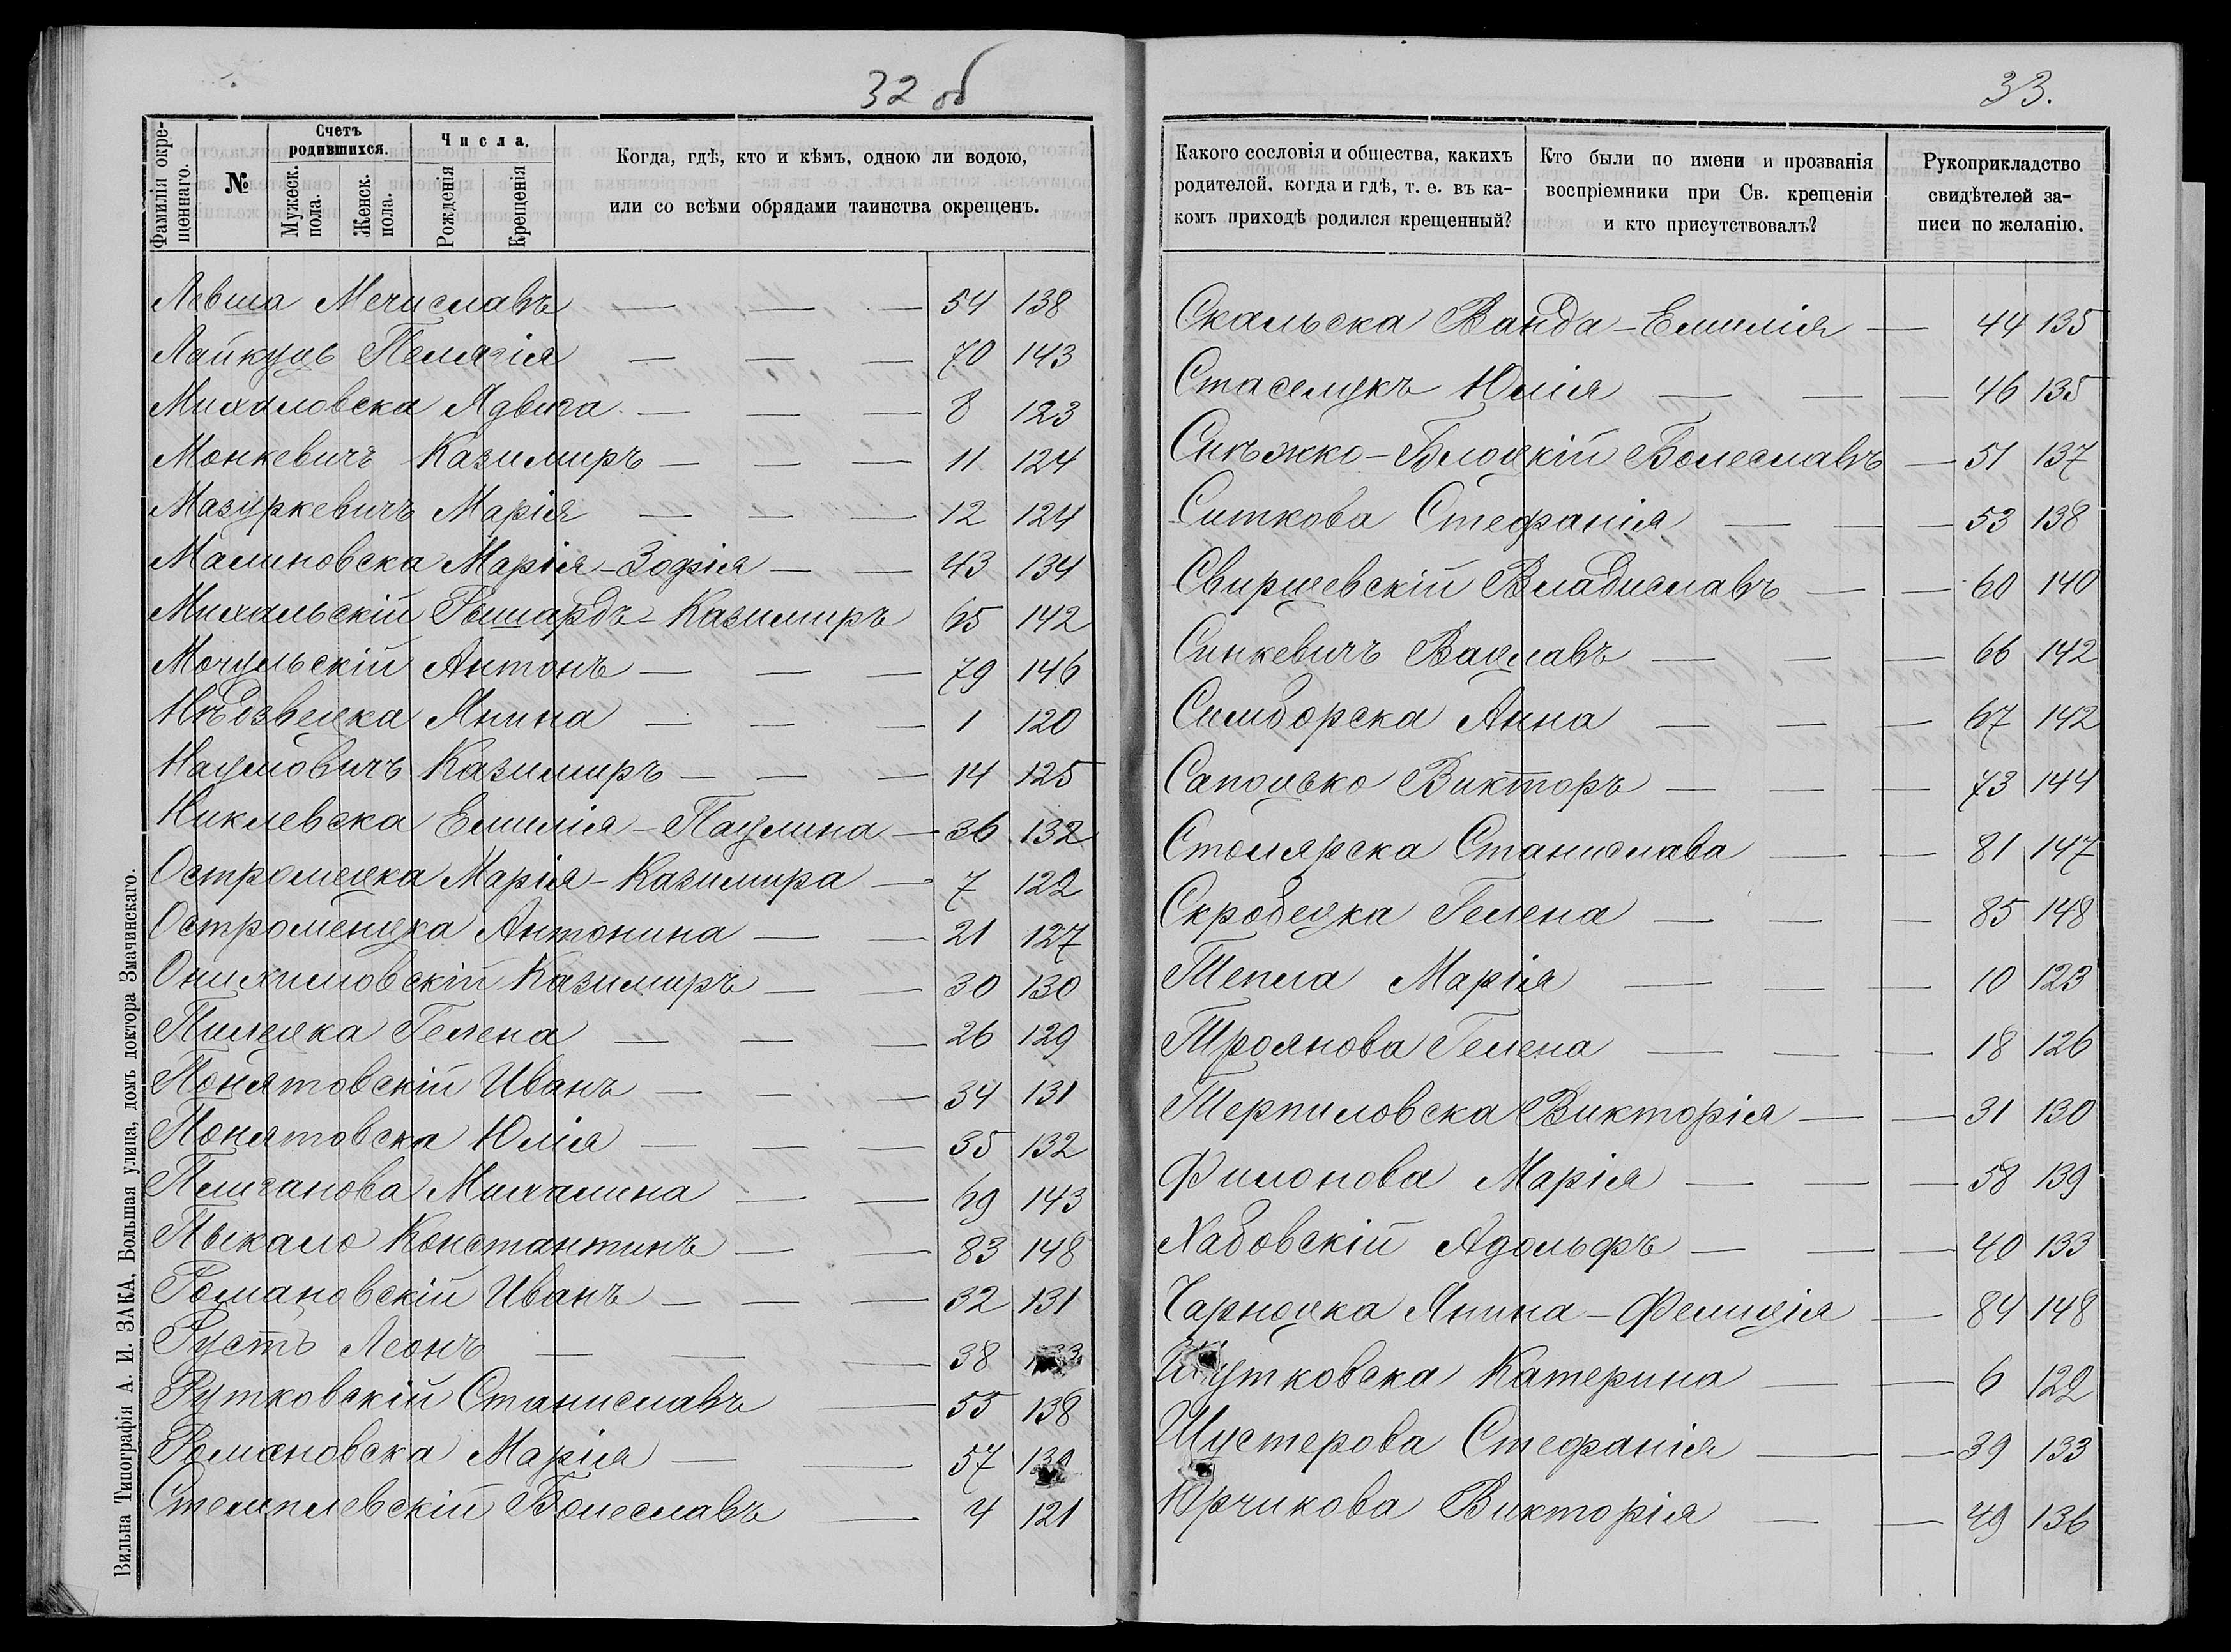 32 об
Фамилія окре-
щеннаго.
№
Счетъ
родившихся.
Мужеск.
пола.
Женск.
пола.
Числа.
Рожденія
Крещенія
Когда, гдѣ, кто и кѣмъ, одною ли водою,
или со всѣми обрядами таинства окрещенъ.
Левша Мечиславъ — — — 54 138
Лайкуць Пелягія — — — 70 143
Михаловска Ядвига — — — 8 123
Монкевичъ Казимиръ — — — 11 124
Мазуркевичъ Марія — — — 12 124
Малиновска Марія-Зофія — — 43 134
Михальскій Рышардъ-Казимиръ 65 142
Мочульскій Антонъ — — — 79 146
Янина — — — 1 120
Наумовичъ Казимиръ — — — 14 125
Никлевска Емилія-Паулина — 36 132
Остромецка Марія-Казимира — 7 122
Остроменцка Антонина — — 21 127
Казимиръ — — 30 130
Пилецка Гелена — — — 26 129
Понятовскій Иванъ — — — 34 131
Понятовска Юлія — — — 35 132
Плиганова Михалина — — 69 143
Пыкало Константинъ — — 83 148
Романовскій Иванъ — — — 32 131
Рустъ Леонъ — — — 38
Рутковскій Станиславъ — 55 138
Романовска Марія — — 57
Стемплевскій Болеславъ — 4 121
Вильна Типографія А. И. ЗАКА, Большая улица, домъ доктора Змачинскаго.
33.
Какого сословія и общества, какихъ
родителей. когда и гдѣ, т. е. въ ка-
комъ приходѣ родился крещенный?
Кто были по имени и прозванія
воспріемники при Св. крещеніи
и кто присутствовалъ?
Рукоприкладство
свидѣтелей за-
писи по желанію.
Скальска Ванда-Емилія — 44 135
Стаселукъ Юлія — — — 46 135
Снѣжко-Блоцкій Болеславъ — 51 137
Ситкова Стефанія — — — 53 138
Свирщевскій Владиславъ — — 60 140
Синкевичъ Вацлавъ — — — 66 142
Симборска Анна — — — 67 142
Сапоцько Викторъ — — — 73 144
Столярска Станислава — — 81 147
Скробецка Гелена — — — 85 148
Тепла Марія — — — 10 123
Троянова Гелена — — — 18 126
Терпиловска Викторія — — 31 130
Филонова Марія — — — 58 139
Хабовскій Адольфъ — — — 40 133
Чарноцка Янина-Фелиція — 84 148
Шутковска Катерина — — 6 122
Шустерова Стефанія — — 39 133
Юрчикова Викторія — — 49 136